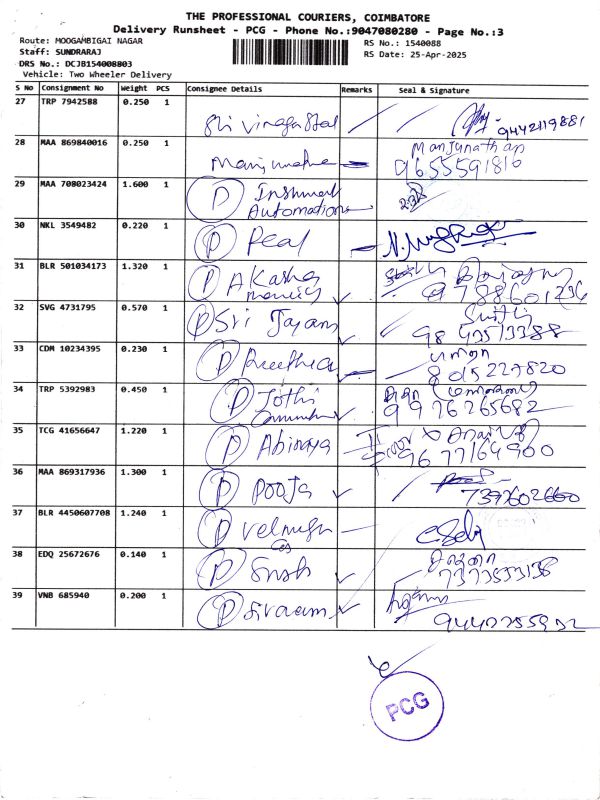 THE PROFESSIONAL COURIERS, COIMBATORE
Delivery Runsheet - PCG - Phone No.:9047080280 - Page No.:3
Route: MOOGAMBIGAI NAGAR
RS No.: 1540088
Staff: SUNDRARAJ
RS Date: 25-Apr-2025
DRS No.: DCJB154008803
Vehicle: Two Wheeler Delivery
S No Consignment No Weight PCS Consignee Details Remarks Seal & Signature
27 TRP 7942588 0.250 1 9442119881
28 MAA 869840016 0.250 1 Manjunathan
9655591816
29 MAA 708023424 1.600 1 P
Automation
30 NKL 3549482 0.220 1 P Peal
31 BLR 501034173 1.320 1 P Akasha
9788601236
32 SVG 4731795 0.570 1 P Sri Jayam
33 CDM 10234395 0.230 1 P Preethica
8015227820
34 TRP 5392983 0.450 1 P Jothi
9976265682
35 TCG 41656647 1.220 1 P Abinaya
9677164900
36 MAA 869317936 1.300 1 P Pooja
7397602660
37 BLR 4450607708 1.240 1 P velmurgn
38 EDQ 25672676 0.140 1 P
7373533138
39 VNB 685940 0.200 1 P Sivaram
PCG